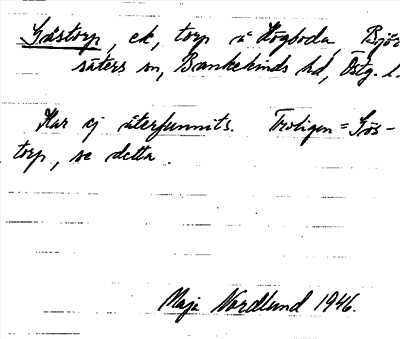 Gåstorp, ek, torp u Högboda, Björ
säters sn, Bankekinds hd, Östg. l.
Har ej återfunnits. Troligen = Gös-
torp, se detta.
Maja Nordlund 1946.